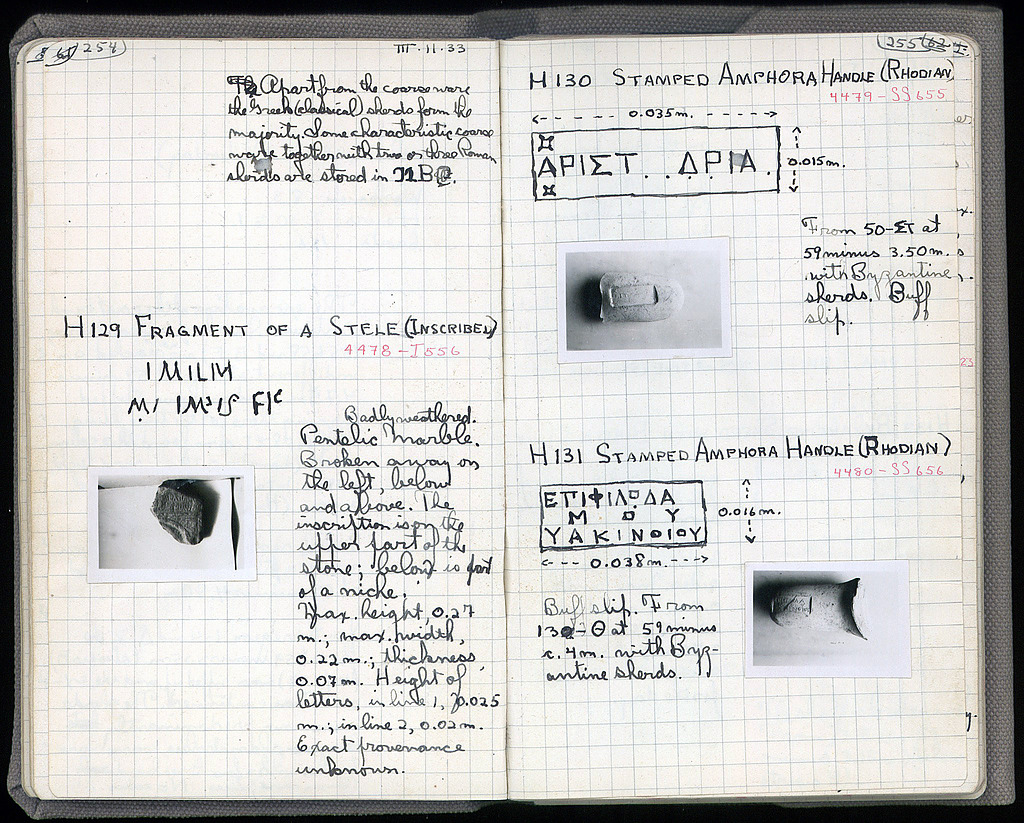 254
III·11·33
Apart from the coarse ware
the Greek (classical) sherds form the
majority. Some characteristic coarse
ware together with two or three Roman
sherds are stored in
H129 FRAGMENT OF A STELE (INSCRIBED)
4478 - I 556
Badly weathered.
Pentelic marble.
Broken away on
the left, below
and above. The
inscription is on the
upper part of the
stone; below is part
of a niche.
Max. height, 0.27
m.; max. width,
0.22 m.; thickness,
0.07 m. Height of
letters, in line 1, 0.025
m.; in line 2, 0.02 m.
Exact provenance
unknown.
255
H130 STAMPED AMPHORA HANDLE (RHODIAN)
4479 - SS 655
0.035 m.
ΑΡΙΣΤ . . ΔΡΙΑ .
0.015 m.
From 50-ΣΤ at
59 minus 3.50 m.
with Byzantine
sherds. Buff
slip.
H131 STAMPED AMPHORA HANDLE (RHODIAN)
4480 - SS 656
ΕΠΙΦΙΛΟΔΑ
Μ Ο Υ
ΥΑΚΙΝΘΙΟΥ
0.016 m.
0.038 m.
Buff slip. From
at 59 minus
c. 4 m. with Byz-
antine sherds.